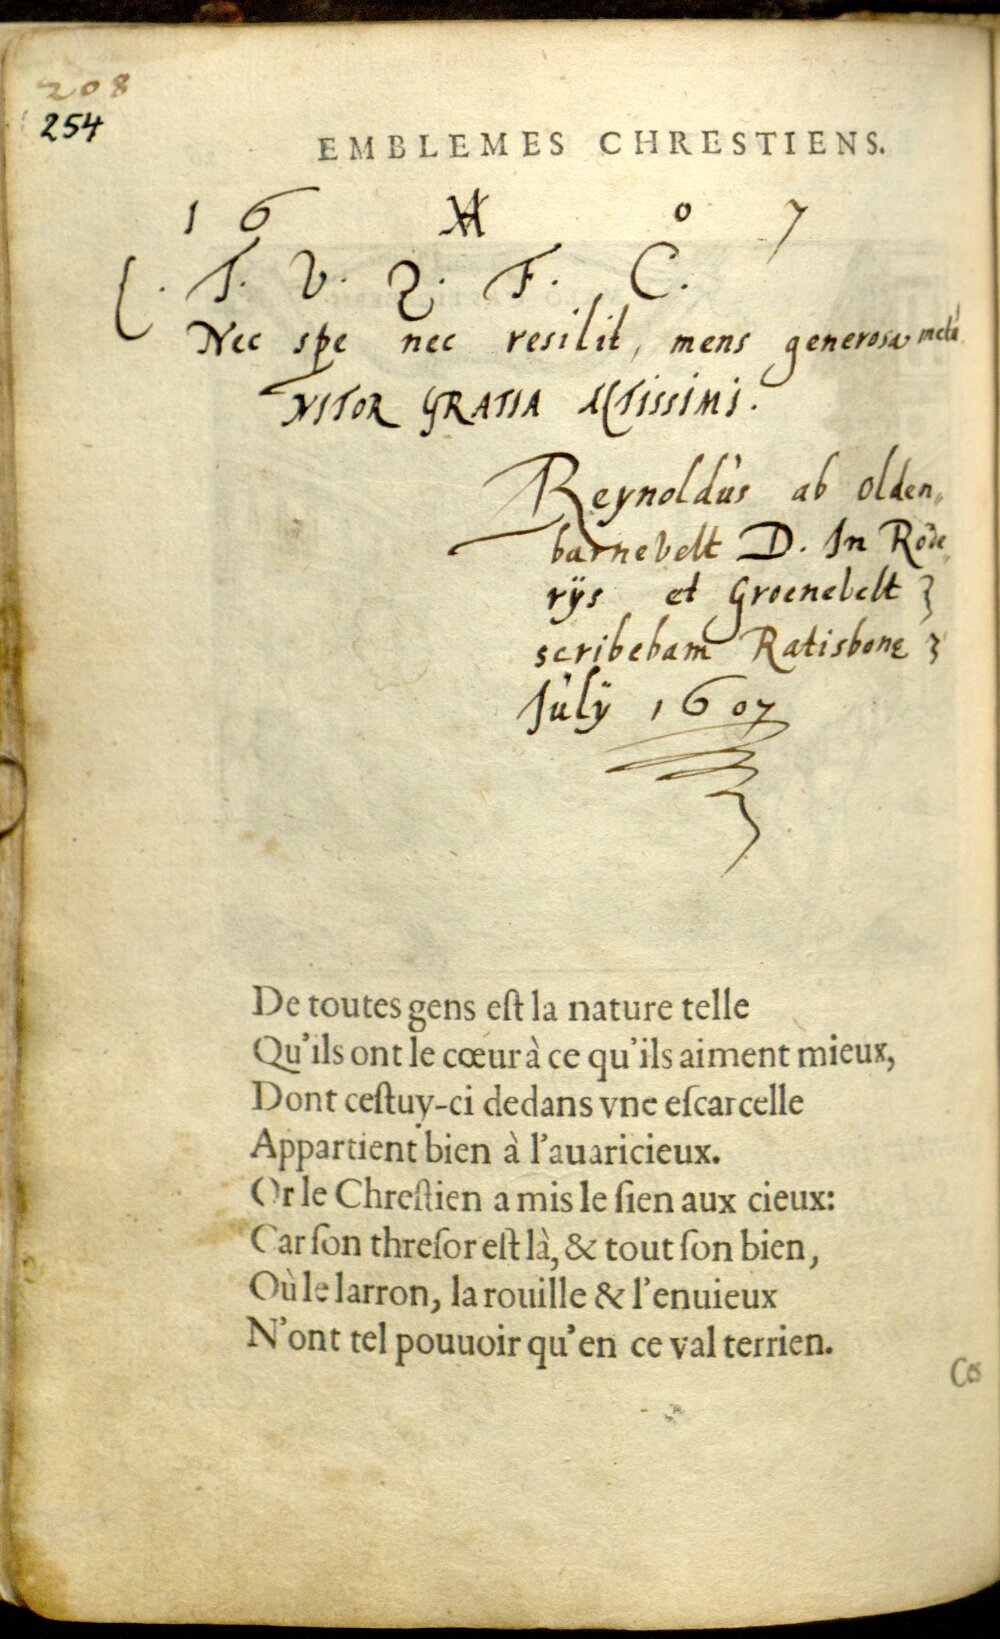 208
254
EMBLEMES CHRESTIENS.
1 6 0 7
T. V. Q. F. C.
Nec spe nec resilit, mens generosa metu
NITOR GRATIA ALTISSIMI.
Reynoldus ab olden„
barnevelt D. In Rode„
rijs et Groenevelt
scribebam Ratisbonę
Julÿ 1607
De toutes gens eſt la nature telle
Qu'ils ont le cœur à ce qu'ils aiment mieux,
Dont ceſtuy-ci dedans vne eſcarcelle
Appartient bien à l'auaricieux.
Or le Chreſtien a mis le ſien aux cieux:
Car ſon threſor eſt là, & tout ſon bien,
Où le larron, la rouille & l'enuieux
N'ont tel pouuoir qu'en ce val terrien.